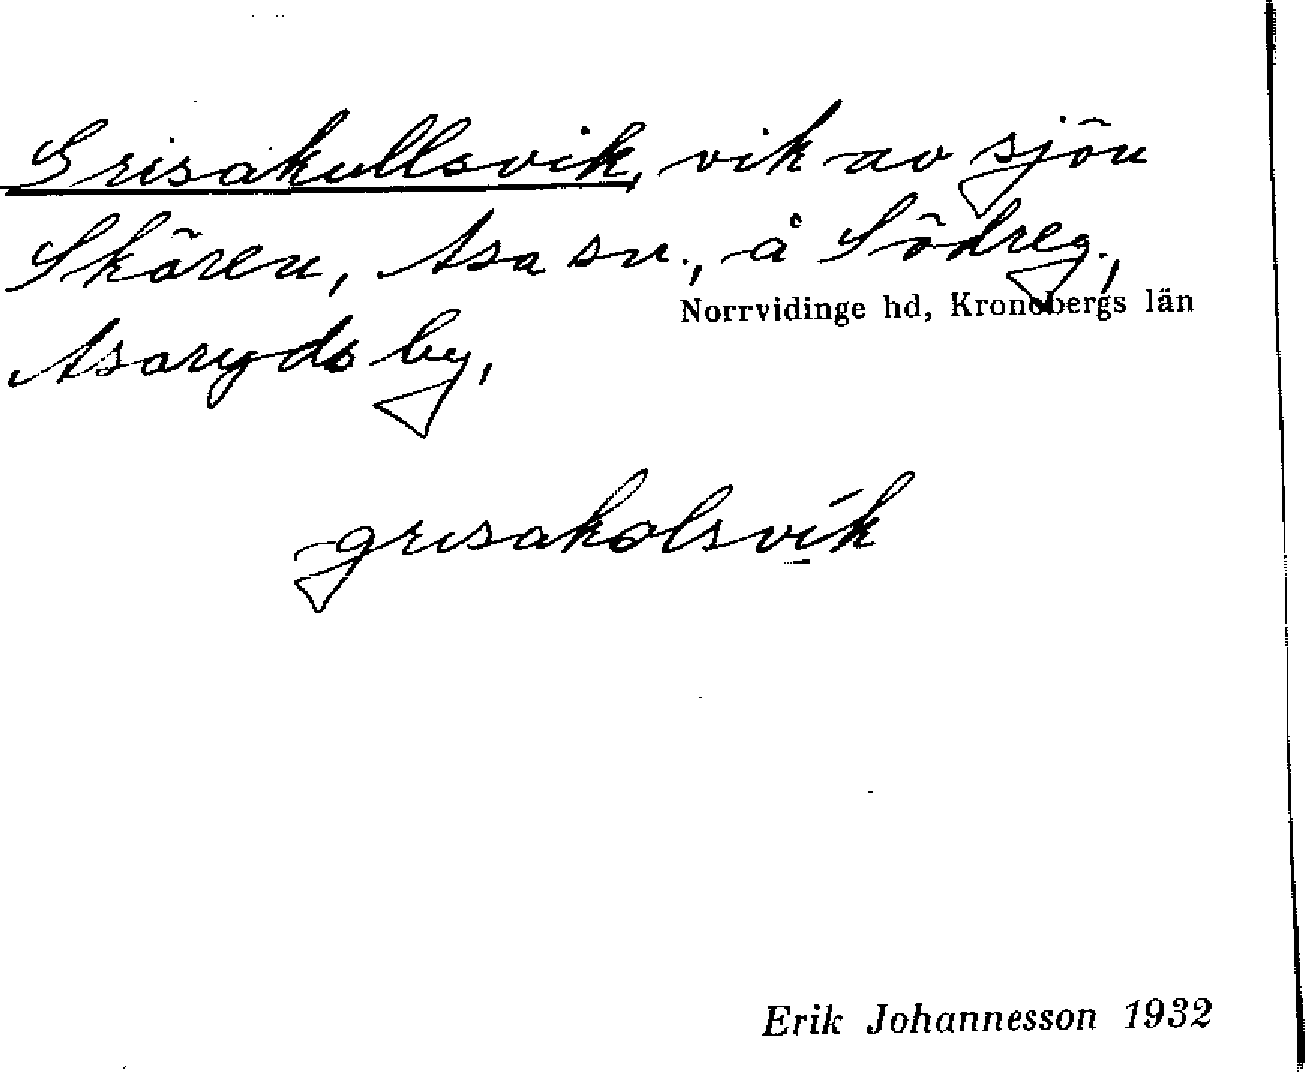 Grisakullsvik, vik av sjön
Skären, Asa sn., å Södreg.,
Norrvidinge hd, Kronobergs län
Asaryds by,
grisakolsvík
Erik Johannesson 1932